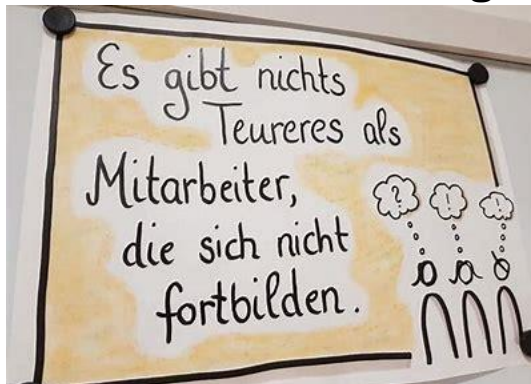 Es gibt nichts
Teureres als
Mitarbeiter,
die sich nicht
fortbilden.
?
!
!